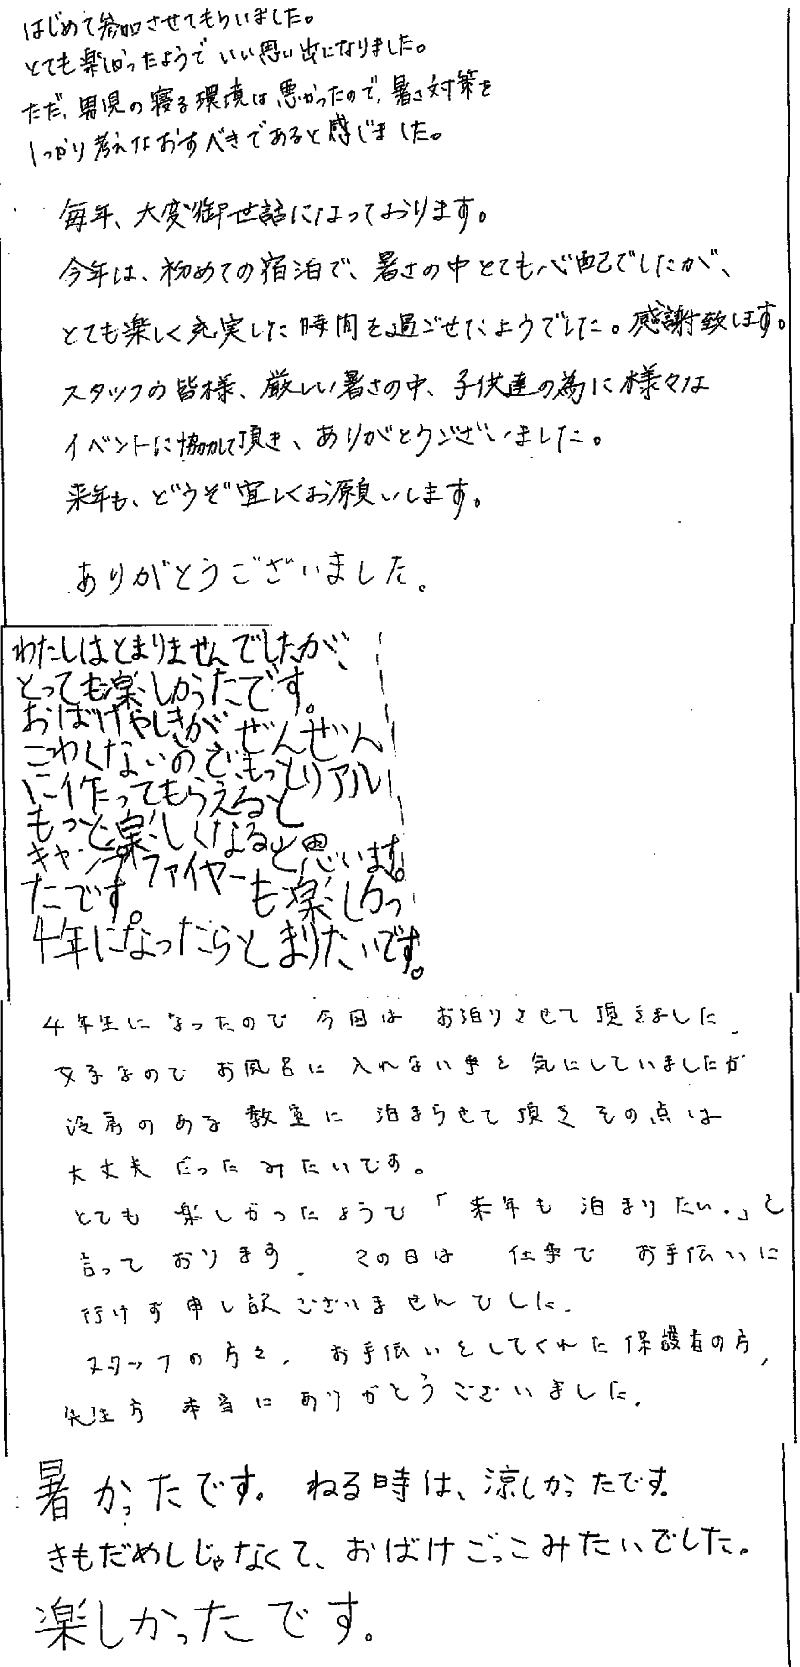 はじめて参加させてもらいました。
とても楽しかったようでいい思い出になりました。
ただ、男児の寝る環境は悪かったので、暑さ対策を
しっかり考えなおすべきであると感じました。
毎年、大変御世話になっております。
今年は、初めての宿泊で、暑さの中とても心配でしたが、
とても楽しく充実した時間を過ごせたようでした。感謝致します。
スタッフの皆様、厳しい暑さの中、子供達の為に様々な
イベントに協力して頂き、ありがとうございました。
来年も、どうぞ宜しくお願いします。
ありがとうございました。
わたしはとまりませんでしたが、
とっても楽しかったです。
おばけやしきがぜんぜん
こわくないのでもっとリアル
に作ってもらえると
もっと楽しくなると思います。
キャンプファイヤーも楽しかっ
たです。
4年になったらとまりたいです。
4年生になったので今回はお泊りさせて頂きました。
女子なのでお風呂に入れない事を気にしていましたが
冷房のある教室に泊まらせて頂きその点は
大丈夫だったみたいです。
とても楽しかったようで「来年も泊まりたい。」と
言っております。この日は仕事でお手伝いに
行けず申し訳ございませんでした。
スタッフの方々、お手伝いをしてくれた保護者の方、
先生方本当にありがとうございました。
暑かったです。ねる時は、涼しかったです。
きもだめしじゃなくて、おばけごっこみたいでした。
楽しかったです。